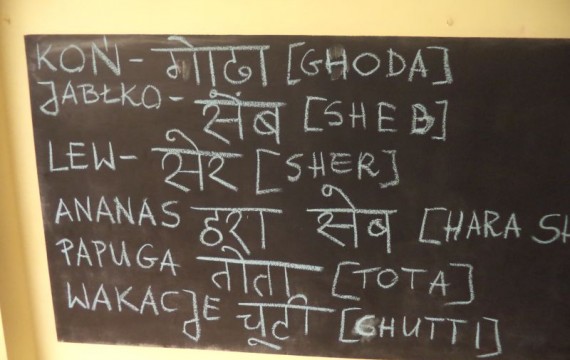 KOŃ - गोढा [GHODA]
JABŁKO - सेंब [SHEB]
LEW - सेर [SHER]
ANANAS हरा सेब [HARA SH
PAPUGA तोता [TOTA]
WAKACJE चूटी [GHUTTI]